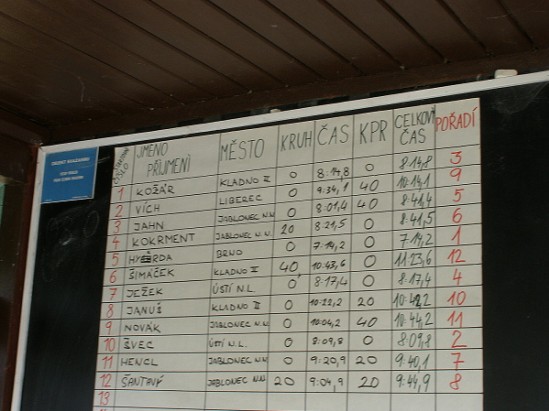 JMÉNO PŘÍJMENÍ MĚSTO KRUH ČAS KPR CELKOVÝ ČAS POŘADÍ
1 KOŽÁR KLADNO II 0 8:14,8 0 8:14,8 3
2 VÍCH LIBEREC 0 9:34,1 40 10:14,1 9
3 JAHN JABLONEC N.N. 0 8:01,4 40 8:41,4 5
4 KOKRMENT JABLONEC N.N. 20 8:21,5 0 8:41,5 6
5 BRNO 0 7:14,2 0 7:14,2 1
6 ŠIMÁČEK KLADNO II 40 10:43,6 0 11:23,6 12
7 JEŽEK ÚSTÍ N.L. 0 8:17,4 0 8:17,4 4
8 JANUŠ KLADNO II 0 10:22,2 20 10:42,2 10
9 NOVÁK JABLONEC N.N. 0 10:04,2 40 10:44,2 11
10 ŠVEC ÚSTÍ N.L. 0 8:09,8 0 8:09,8 2
11 HENCL JABLONEC N.N. 0 9:20,9 20 7
12 ŠANTAVÝ JABLONEC N.N. 20 9:04,9 20 9:44,9 8
13